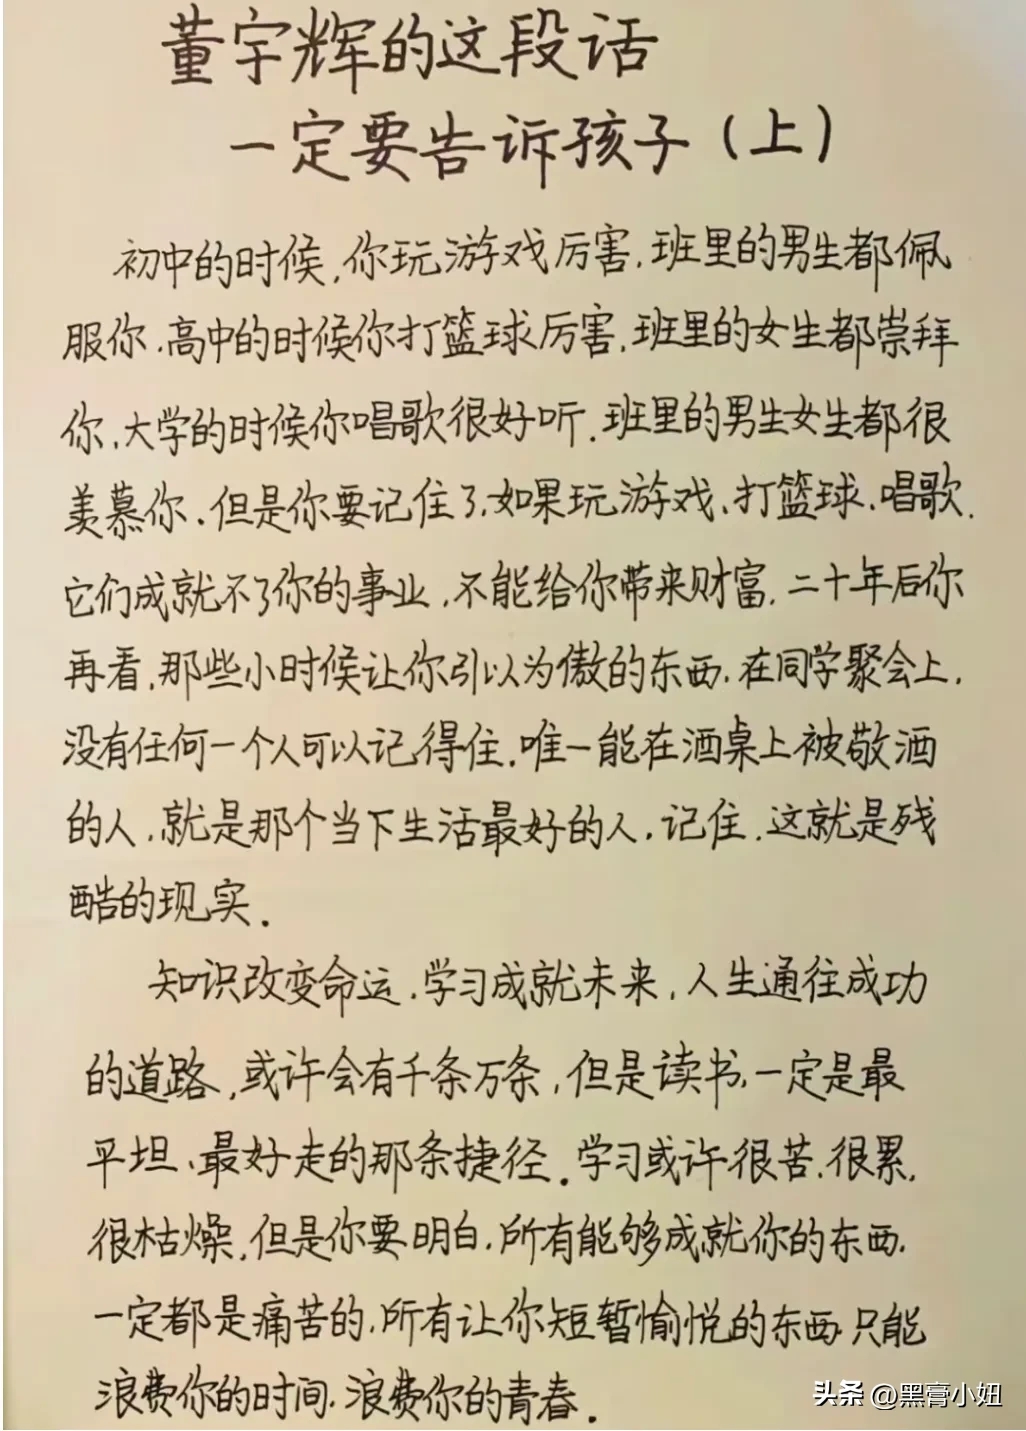 董宇辉的这段话
一定要告诉孩子(上)
初中的时候,你玩游戏厉害,班里的男生都佩
服你.高中的时候你打篮球厉害,班里的女生都崇拜
你,大学的时候你唱歌很好听.班里的男生女生都很
羡慕你.但是你要记住了,如果玩游戏、打篮球、唱歌.
它们成就不了你的事业,不能给你带来财富,二十年后你
再看,那些小时候让你引以为傲的东西,在同学聚会上,
没有任何一个人可以记得住.唯一能在酒桌上被敬酒
的人,就是那个当下生活最好的人,记住.这就是残
酷的现实.
知识改变命运.学习成就未来,人生通往成功
的道路,或许会有千条万条,但是读书,一定是最
平坦、最好走的那条捷径.学习或许很苦.很累,
很枯燥,但是你要明白.所有能够成就你的东西.
一定都是痛苦的,所有让你短暂愉悦的东西.只能
浪费你的时间.浪费你的青春.
头条 @黑膏小妞